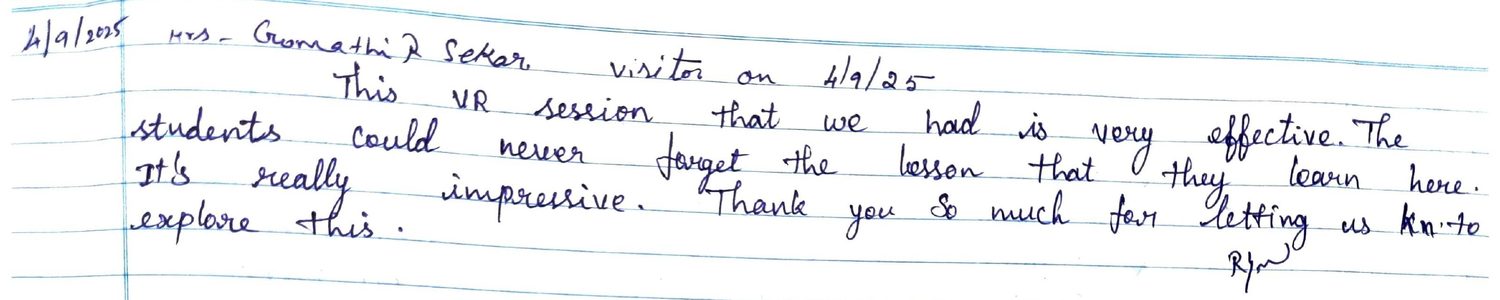 4/9/2025 Mrs - Gomathi R Sekar visitor on 4/9/25
This VR session that we had is very effective. The
students could never forget the lesson that they learn here.
It's really impressive. Thank you so much for letting us to
explore this.